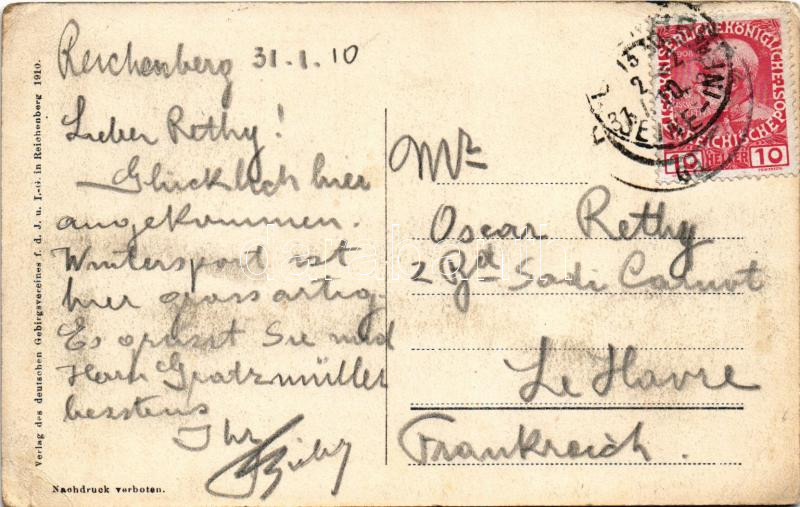 Reichenberg 31.1.10
Lieber Rethy!
Glücklich hier
angekommen.
Wintersport ist
hier grossartig.
Es grüsst Sie und
Herrn Gratzmüller
besstens
Ihr
Mr
Oscar Rethy
2 Bd Sadi Carnot
Le Havre
Frankreich.
Verlag des deutschen Gebirgsvereines f. d. J. u. I.-G. in Reichenberg 1910.
Nachdruck verboten.
KAISERLICHE KÖNIGLICHE
ÖSTERREICHISCHE POST
10 HELLER 10